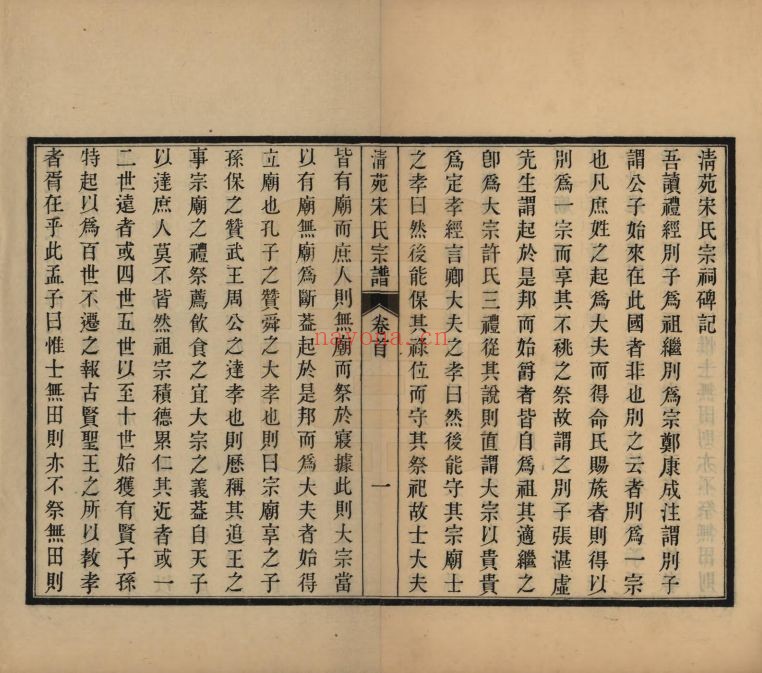 清苑宋氏宗祠碑記
吾讀禮經別子爲祖繼別爲宗鄭康成注謂別子
謂公子始來在此國者非也別之云者別爲一宗
也凡庶姓之起爲大夫而得命氏賜族者則得以
別爲一宗而享其不祧之祭故謂之別子張湛虛
先生謂起於是邦而始爵者皆自爲祖其適繼之
卽爲大宗許氏三禮從其說則直謂大宗以貴貴
爲定孝經言卿大夫之孝曰然後能守其宗廟士
之孝曰然後能保其祿位而守其祭祀故士大夫
清苑宋氏宗譜 卷首 一
皆有廟而庶人則無廟而祭於寢據此則大宗當
以有廟無廟爲斷葢起於是邦而爲大夫者始得
立廟也孔子之贊舜之大孝也則曰宗廟享之子
孫保之贊武王周公之達孝也則歷稱其追王之
事宗廟之禮祭薦飮食之宜大宗之義葢自天子
以達庶人莫不皆然祖宗積德累仁其近者或一
二世遠者或四世五世以至十世始獲有賢子孫
特起以爲百世不遷之報古賢聖王之所以敎孝
者胥在乎此孟子曰惟士無田則亦不祭無田則
nayona.cn